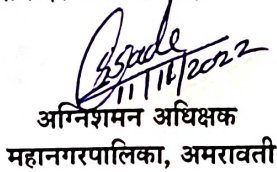 11/11/2022
अग्निशमन अधिक्षक
महानगरपालिका, अमरावती